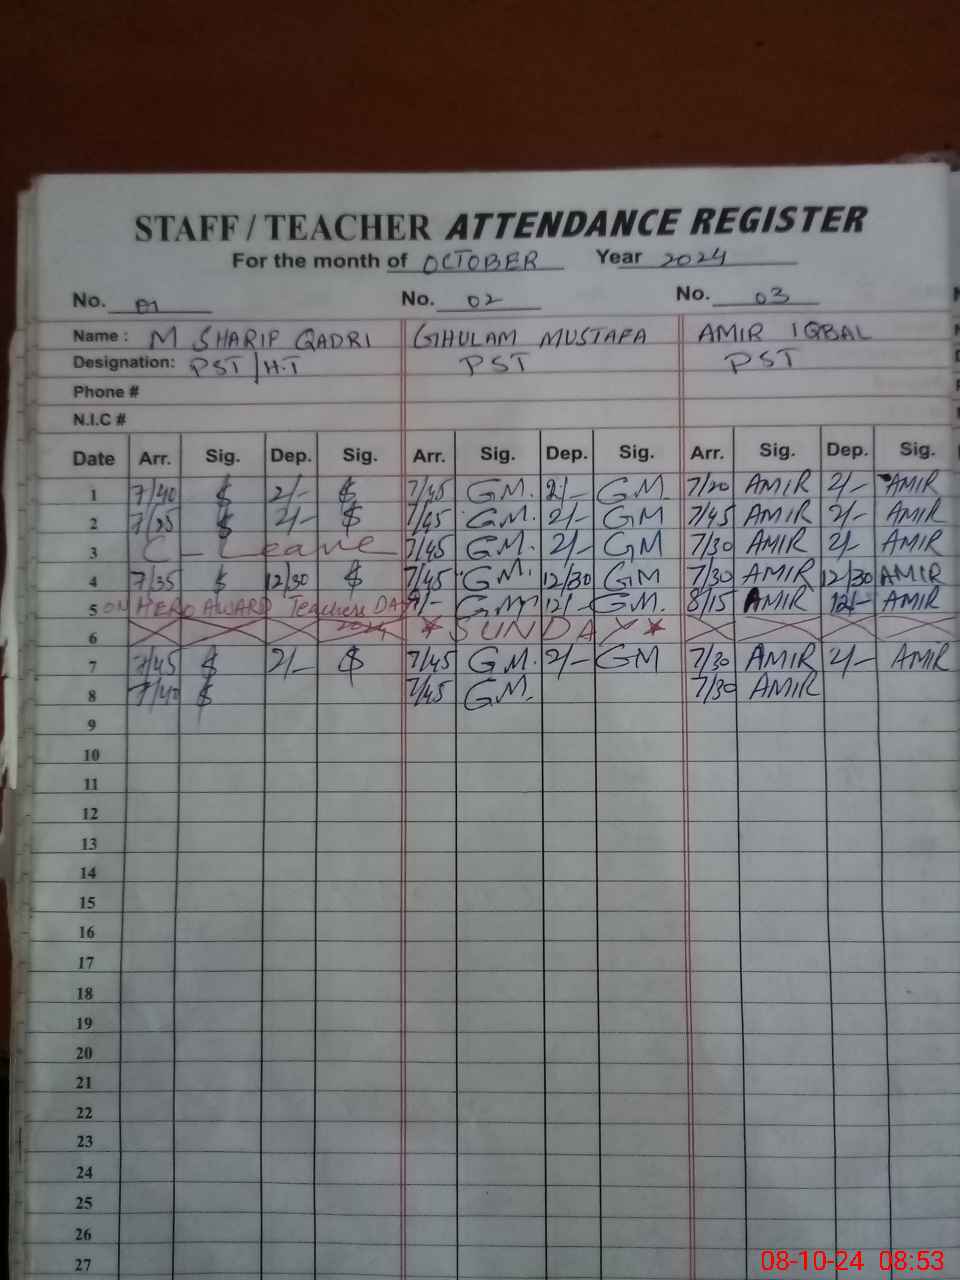 STAFF / TEACHER ATTENDANCE REGISTER
For the month of OCTOBER Year 2024
No. 01 No. 02 No. 03
Name : M SHARIF QADRI GHULAM MUSTAFA AMIR IQBAL
Designation: PST/H.T PST PST
Phone #
N.I.C #
Date Arr. Sig. Dep. Sig. Arr. Sig. Dep. Sig. Arr. Sig. Dep. Sig.
1 7/40 $ 2/- $ 7/45 GM. 2/- GM 7/20 AMIR 2/- AMIR
2 7/35 $ 2/- $ 7/45 GM. 2/- GM 7/45 AMIR 2/- AMIR
3 C - Leave 7/45 GM. 2/- GM 7/30 AMIR 2/- AMIR
4 7/35 $ 12/30 $ 7/45 GM. 12/30 GM 7/30 AMIR 12/30 AMIR
5 ON HERO AWARD Teachers DAY 2024 GM 12/- GM. 8/15 AMIR 12/- AMIR
6 SUNDAY
7 7/45 $ 2/- $ 7/45 GM. 2/- GM 7/30 AMIR 2/- AMIR
8 7/40 $ 7/45 GM. 7/30 AMIR
9
10
11
12
13
14
15
16
17
18
19
20
21
22
23
24
25
26
27
08-10-24 08:53